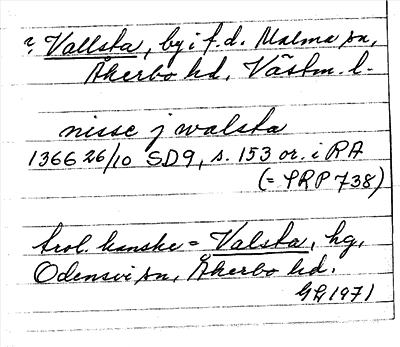 ?, Vallsta, by i f.d. Malma sn,
Åkerbo hd, Västm. l.
nisse j walsta
1366 26/10 SD9, s. 153 or. i RA
(= SRP 738)
trol. kanske = Valsta, hg,
Odensvi sn, Åkerbo hd.
GH 1971